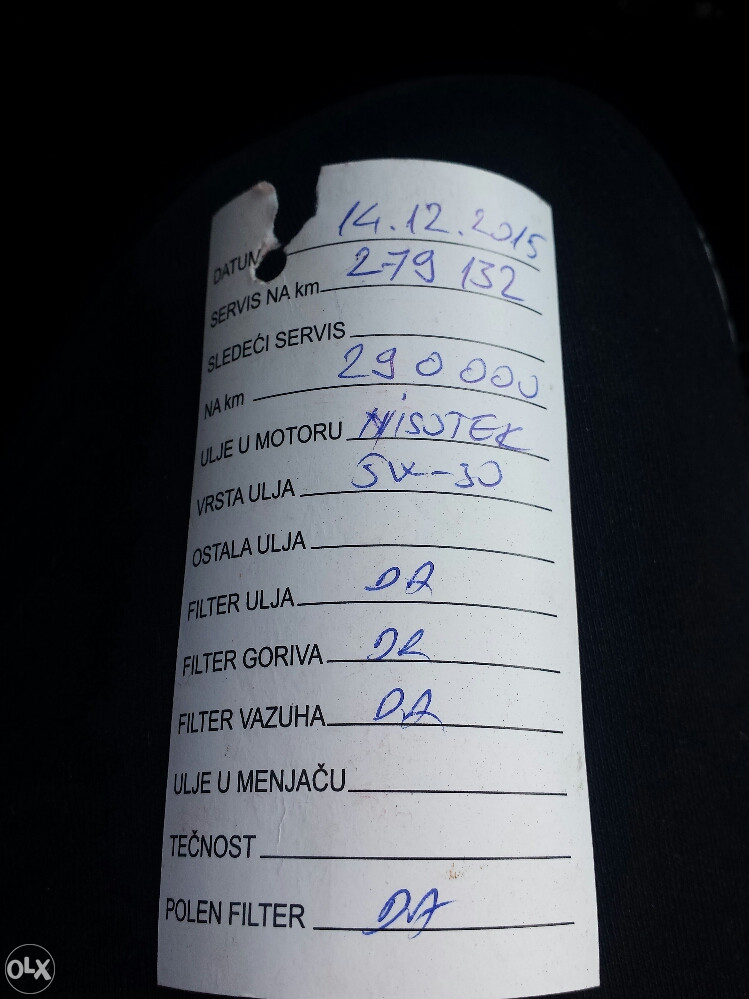 DATUM 14.12.2015
SERVIS NA km 279 132
SLEDEĆI SERVIS
NA km 290 000
ULJE U MOTORU NISOTEK
VRSTA ULJA 5W-30
OSTALA ULJA
FILTER ULJA DA
FILTER GORIVA DA
FILTER VAZUHA DA
ULJE U MENJAČU
TEČNOST
POLEN FILTER DA
OLX